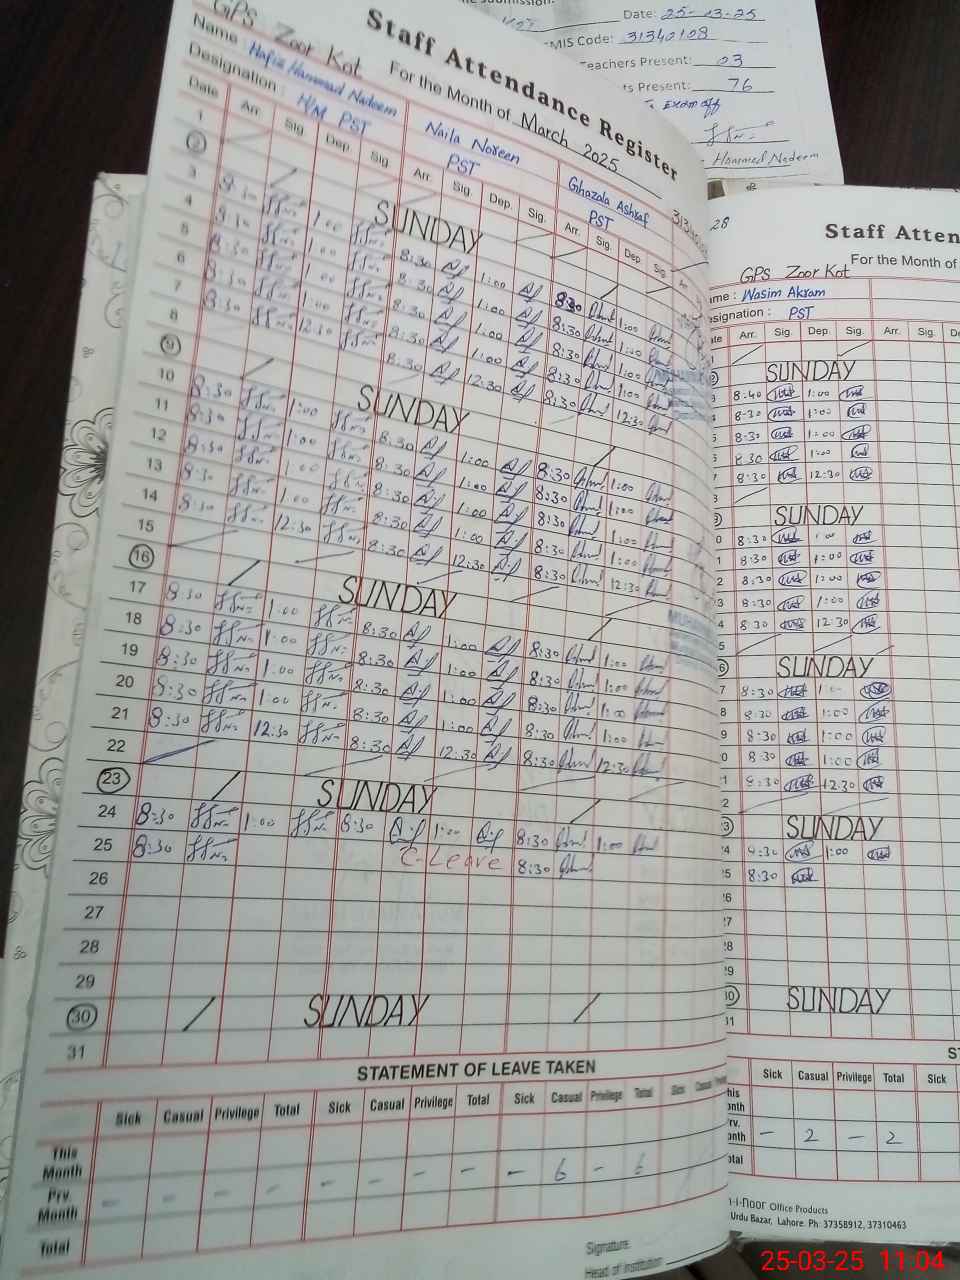 Date: 25-03-25
MIS Code: 31340108
Teachers Present: 03
ts Present: 76
Exam off
Hammad Nadeem
Staff Attendance Register
GPS Zoor Kot For the Month of March 2025
Name : Hafiz Hammad Nadeem Naila Noreen Ghazala Ashraf
Designation : H/M PST PST PST
Date Arr. Sig. Dep. Sig. Arr. Sig. Dep. Sig. Arr. Sig. Dep. Sig.
1
2 SUNDAY
3 8:30 1:00 8:30 1:00 8:30 1:00
4 8:30 1:00 8:30 1:00 8:30 1:00
5 8:30 1:00 8:30 1:00 8:30 1:00
6 8:30 1:00 8:30 1:00 8:30 1:00
7 8:30 12:30 8:30 12:30 8:30 12:30
8
9 SUNDAY
10 8:30 1:00 8:30 1:00 8:30 1:00
11 8:30 1:00 8:30 1:00 8:30 1:00
12 8:30 1:00 8:30 1:00 8:30 1:00
13 8:30 1:00 8:30 1:00 8:30 1:00
14 12:30 8:30 12:30 8:30 12:30
15
16 SUNDAY
17 8:30 1:00 8:30 1:00 8:30 1:00
18 8:30 1:00 8:30 1:00 8:30 1:00
19 8:30 1:00 8:30 1:00 8:30 1:00
20 8:30 1:00 8:30 1:00 8:30 1:00
21 8:30 12:30 8:30 12:30 8:30 12:30
22
23 SUNDAY
24 8:30 1:00 8:30 1:00 8:30 1:00
25 8:30 C-Leave 8:30
26
27
28
29
30 SUNDAY
31
STATEMENT OF LEAVE TAKEN
Sick Casual Privilege Total Sick Casual Privilege Total Sick Casual Privilege Total Sick Casual
This Month
Prv. Month - - - - - - - - - 6 - 6
Total
Signature
Head of Institution
28
Staff Atten
For the Month of
GPS Zoor Kot
ame : Wasim Akram
esignation : PST
ate Arr. Sig. Dep. Sig. Arr. Sig. Dep.
SUNDAY
3 8:40 1:00
4 8:30 1:00
5 8:30 1:00
6 8:30 1:00
7 8:30 12:30
8
9 SUNDAY
0 8:30 1:00
1 8:30 1:00
2 8:30 1:00
3 8:30 1:00
4 8:30 12:30
5
6 SUNDAY
7 8:30 1:00
8 8:30 1:00
9 8:30 1:00
0 8:30 1:00
1 8:30 12:30
2
3 SUNDAY
4 8:30 1:00
5 8:30
26
27
28
29
30 SUNDAY
31
ST
Sick Casual Privilege Total Sick
his onth
rv. onth - 2 - 2
otal
n-i-noor Office Products
Urdu Bazar, Lahore. Ph: 37358912, 37310463
25-03-25 11:04